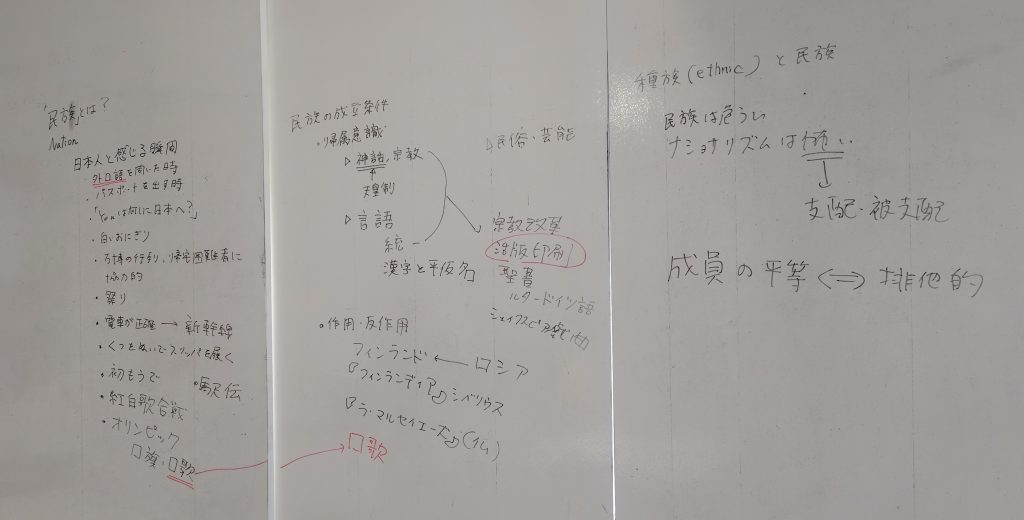 「民族」とは?
Nation
日本人と感じる瞬間
・外口語を聞いた時
・パスポートを出す時
・「Youは何しに日本へ?」
・白いおにぎり
・万博の行列、帰宅困難者に
協力的
・踊り
・電車が正確 → 新幹線
・くつをぬいでスリッパを履く
・初もうで ・駅伝
・紅白歌合戦
・オリンピック
口旗・口歌
民族の成立条件
・帰属意識
▷神話、宗教
天皇制
▷言語
統一
漢字と平仮名
▷民俗・芸能
宗教改革
活版印刷
聖書
ルター ドイツ語
シェイクスピア
・作用・反作用
フィンランド ← ロシア
『フィンランディア』シベリウス
『ラ・マルセイエーズ』(仏)
口歌
種族(ethnic)と民族
民族は危うい
ナショナリズムは怖い
支配・被支配
成員の平等 ⇔ 排他的